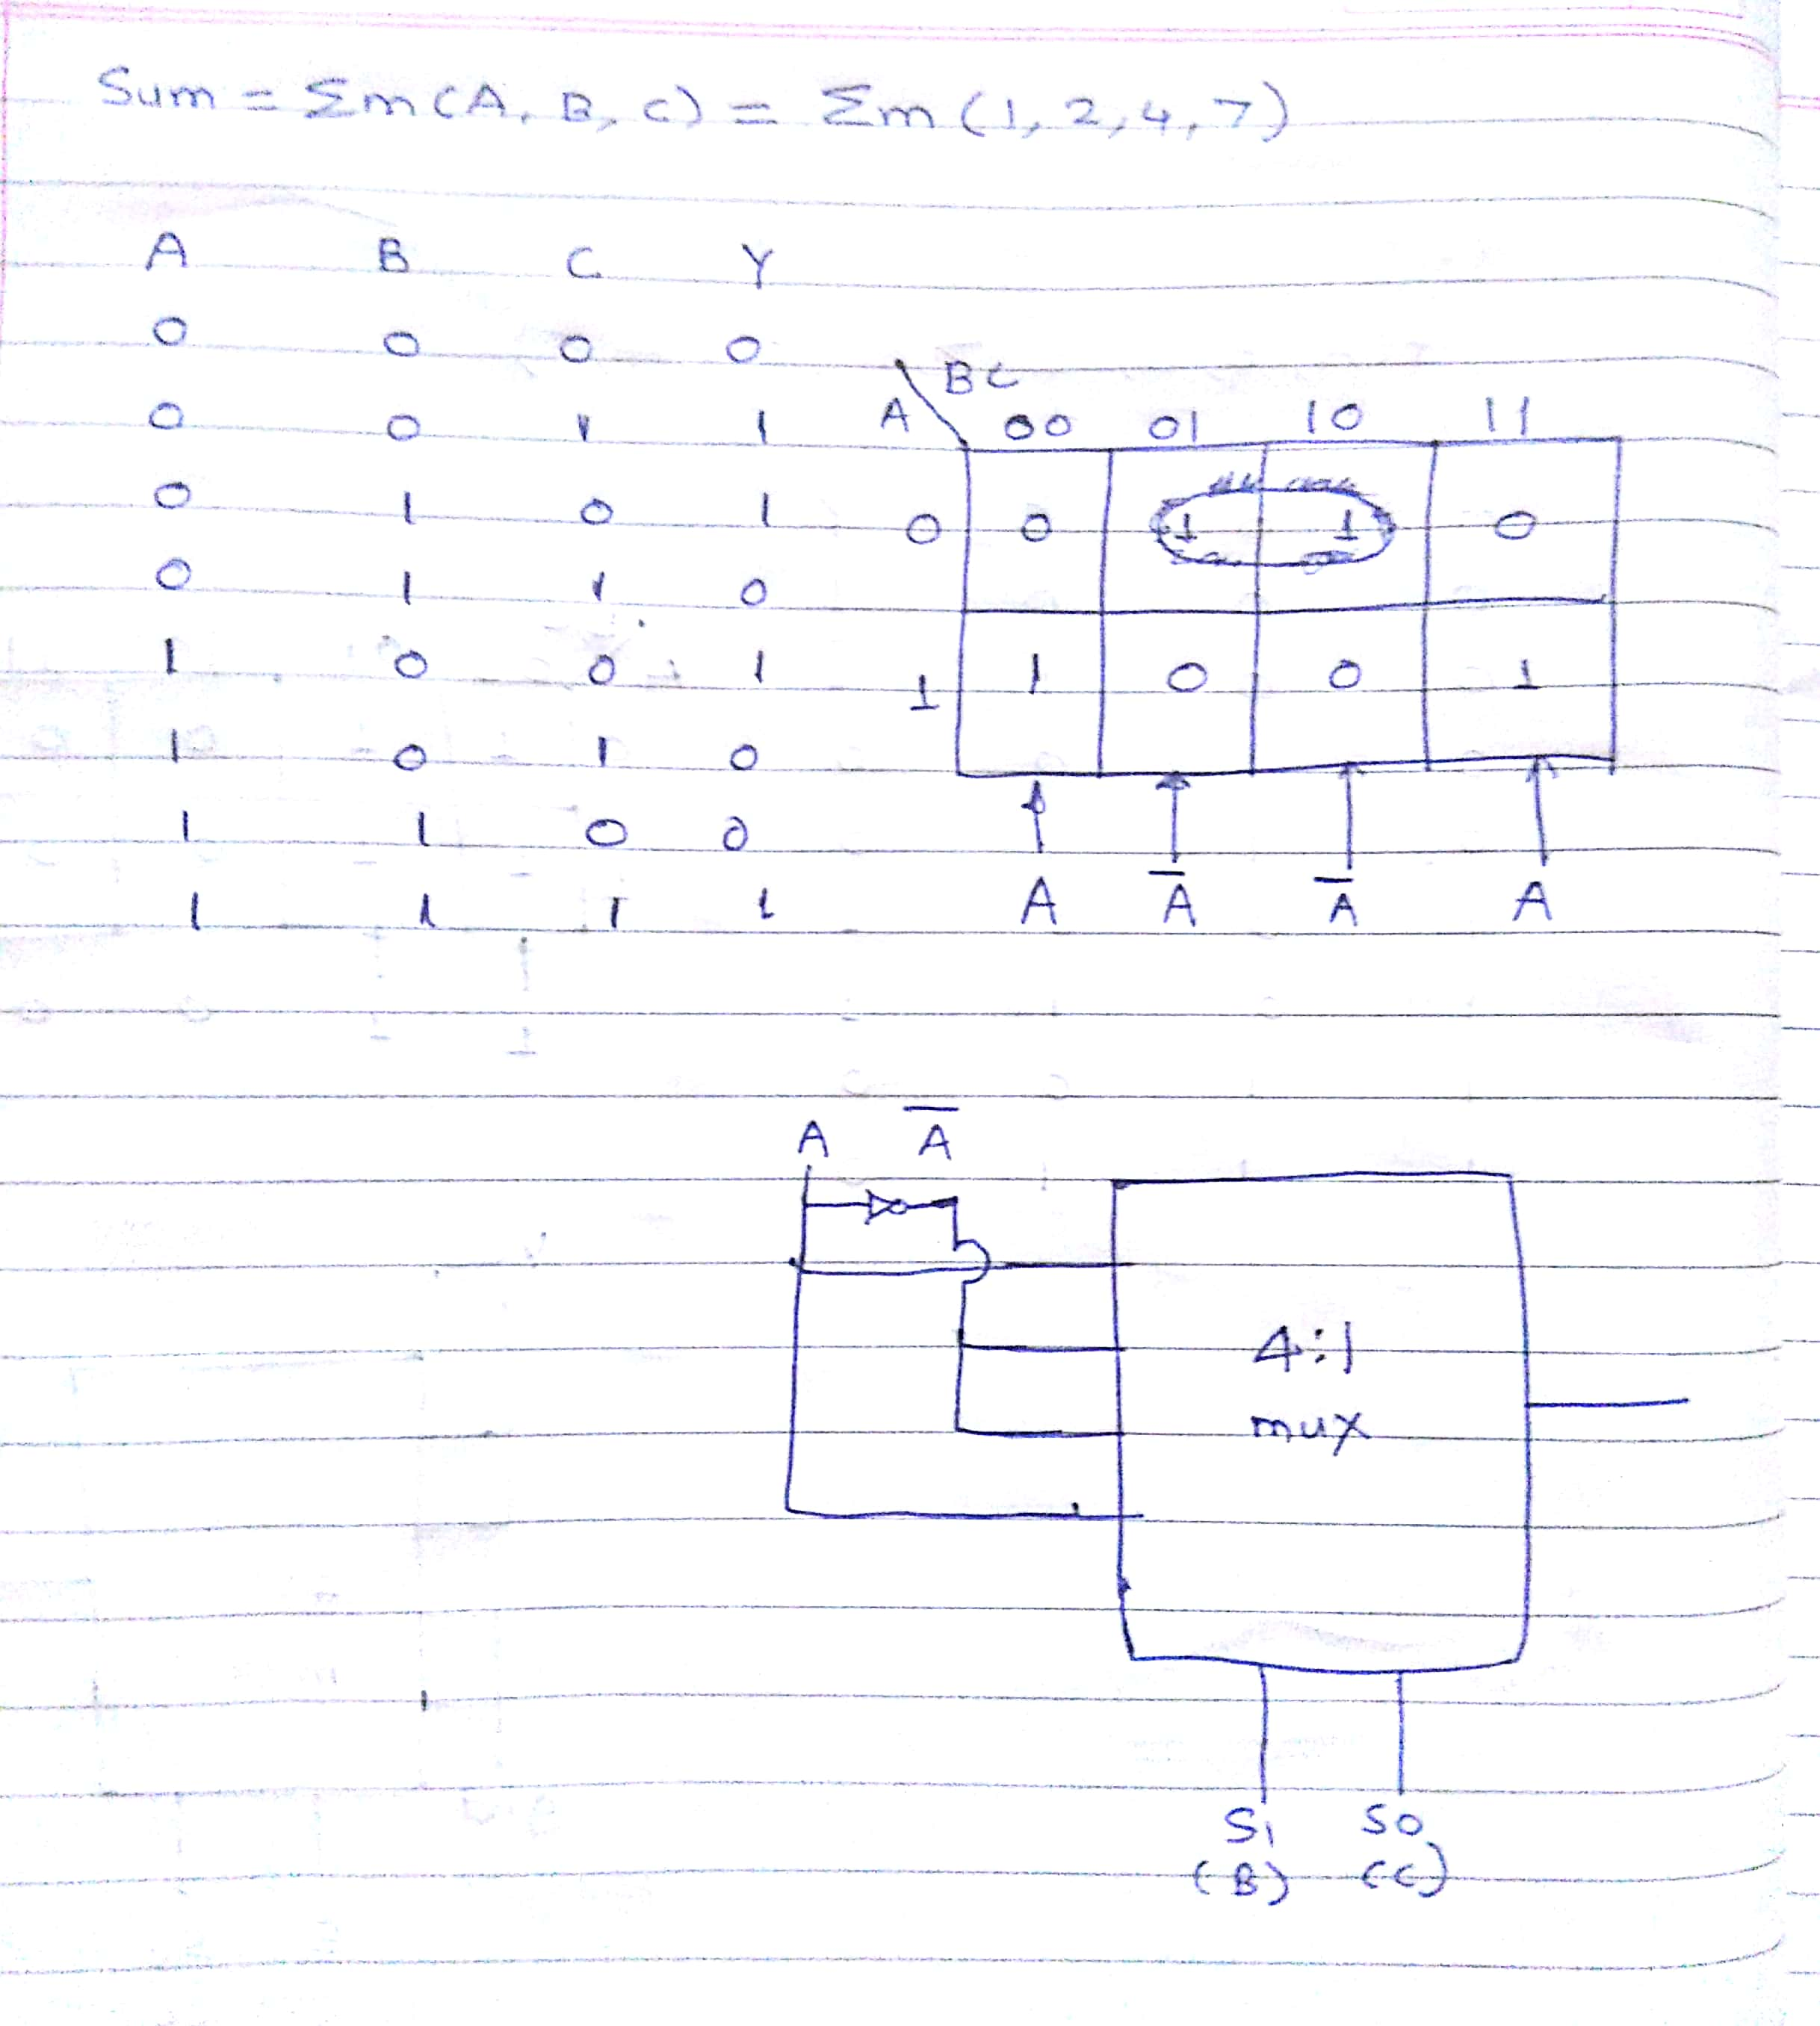 Sum = Σm(A, B, C) = Σm (1, 2, 4, 7)
A B C Y
0 0 0 0
0 0 1 1
0 1 0 1
0 1 1 0
1 0 0 1
1 0 1 0
1 1 0 0
1 1 1 1
BC
A 00 01 10 11
0 0 1 1 0
1 1 0 0 1
A A̅ A̅ A
A A̅
4:1
mux
S1 S0
(B) (C)